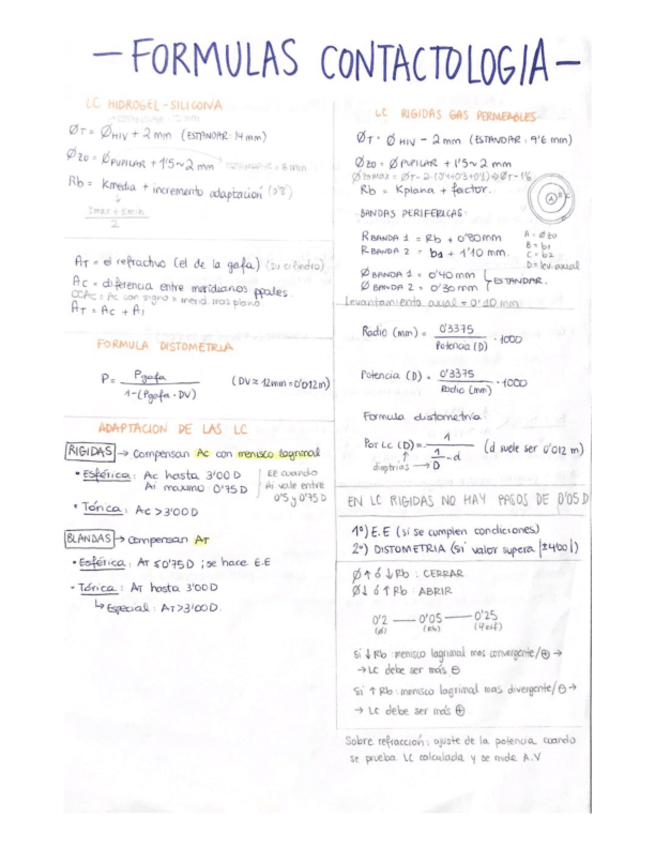 - FORMULAS CONTACTOLOGIA -
LC HIDROGEL-SILICONA
ØT = ØHIV + 2 mm (ESTANDAR: 14 mm)
ØZO = ØPUPILAR + 1'5 ~ 2 mm
Rb = Kmedia + incremento adaptación (0'8)
↓
Kmax + Kmin
2
AT = el refractivo (el de la gafa) (su cilindro)
AC = diferencia entre meridianos ppales.
CCAC = AC con signo x merid. mas plano
AT = AC + AI
FORMULA DISTOMETRIA
P = Pgafa / 1-(Pgafa · DV) (DV ≈ 12mm = 0'012m)
ADAPTACION DE LAS LC
RIGIDAS → Compensan AC con menisco lagrimal
• Esférica: AC hasta 3'00 D
AI maximo: 0'75 D
EE cuando
AI vale entre
0'5 y 0'75 D
• Tórica: AC > 3'00 D
BLANDAS → Compensan AT
• Esférica: AT ≤ 0'75 D ; se hace E.E
• Tórica: AT hasta 3'00 D
↳ Especial: AT > 3'00 D.
LC RIGIDAS GAS PERMEABLES
ØT = ØHIV - 2 mm (ESTANDAR: 9'6 mm)
ØZO = ØPUPILAR + 1'5 ~ 2 mm
Rb = Kplana + factor.
BANDAS PERIFERICAS:
RBANDA 1 = Rb + 0'80 mm
RBANDA 2 = b1 + 1'10 mm.
A = ØZO
B = b1
C = b2
D = lev. axial
ØBANDA 1 = 0'40 mm
ØBANDA 2 = 0'30 mm
ESTANDAR.
Levantamiento axial = 0'10 mm
Radio (mm) = 0'3375 / Potencia (D) · 1000
Potencia (D) = 0'3375 / Radio (mm) · 1000
Formula distometria:
Por LC (D) = 1 / (1/D - d) (d suele ser 0'012 m)
dioptrias → D
EN LC RIGIDAS NO HAY PASOS DE 0'05 D
1º) E.E (si se cumplen condiciones)
2º) DISTOMETRIA (si valor supera |±4'00|)
Ø↑ ó ↓Rb : CERRAR
Ø↓ ó ↑Rb : ABRIR
0'2 — 0'05 — 0'25
(Ø) (Rb) (Pesf)
Si ↓Rb: menisco lagrimal mas convergente/⊕ →
→ LC debe ser más ⊖
Si ↑Rb: menisco lagrimal mas divergente/⊖ →
→ LC debe ser más ⊕
Sobre refracción: ajuste de la potencia cuando
se prueba LC calculada y se mide A.V